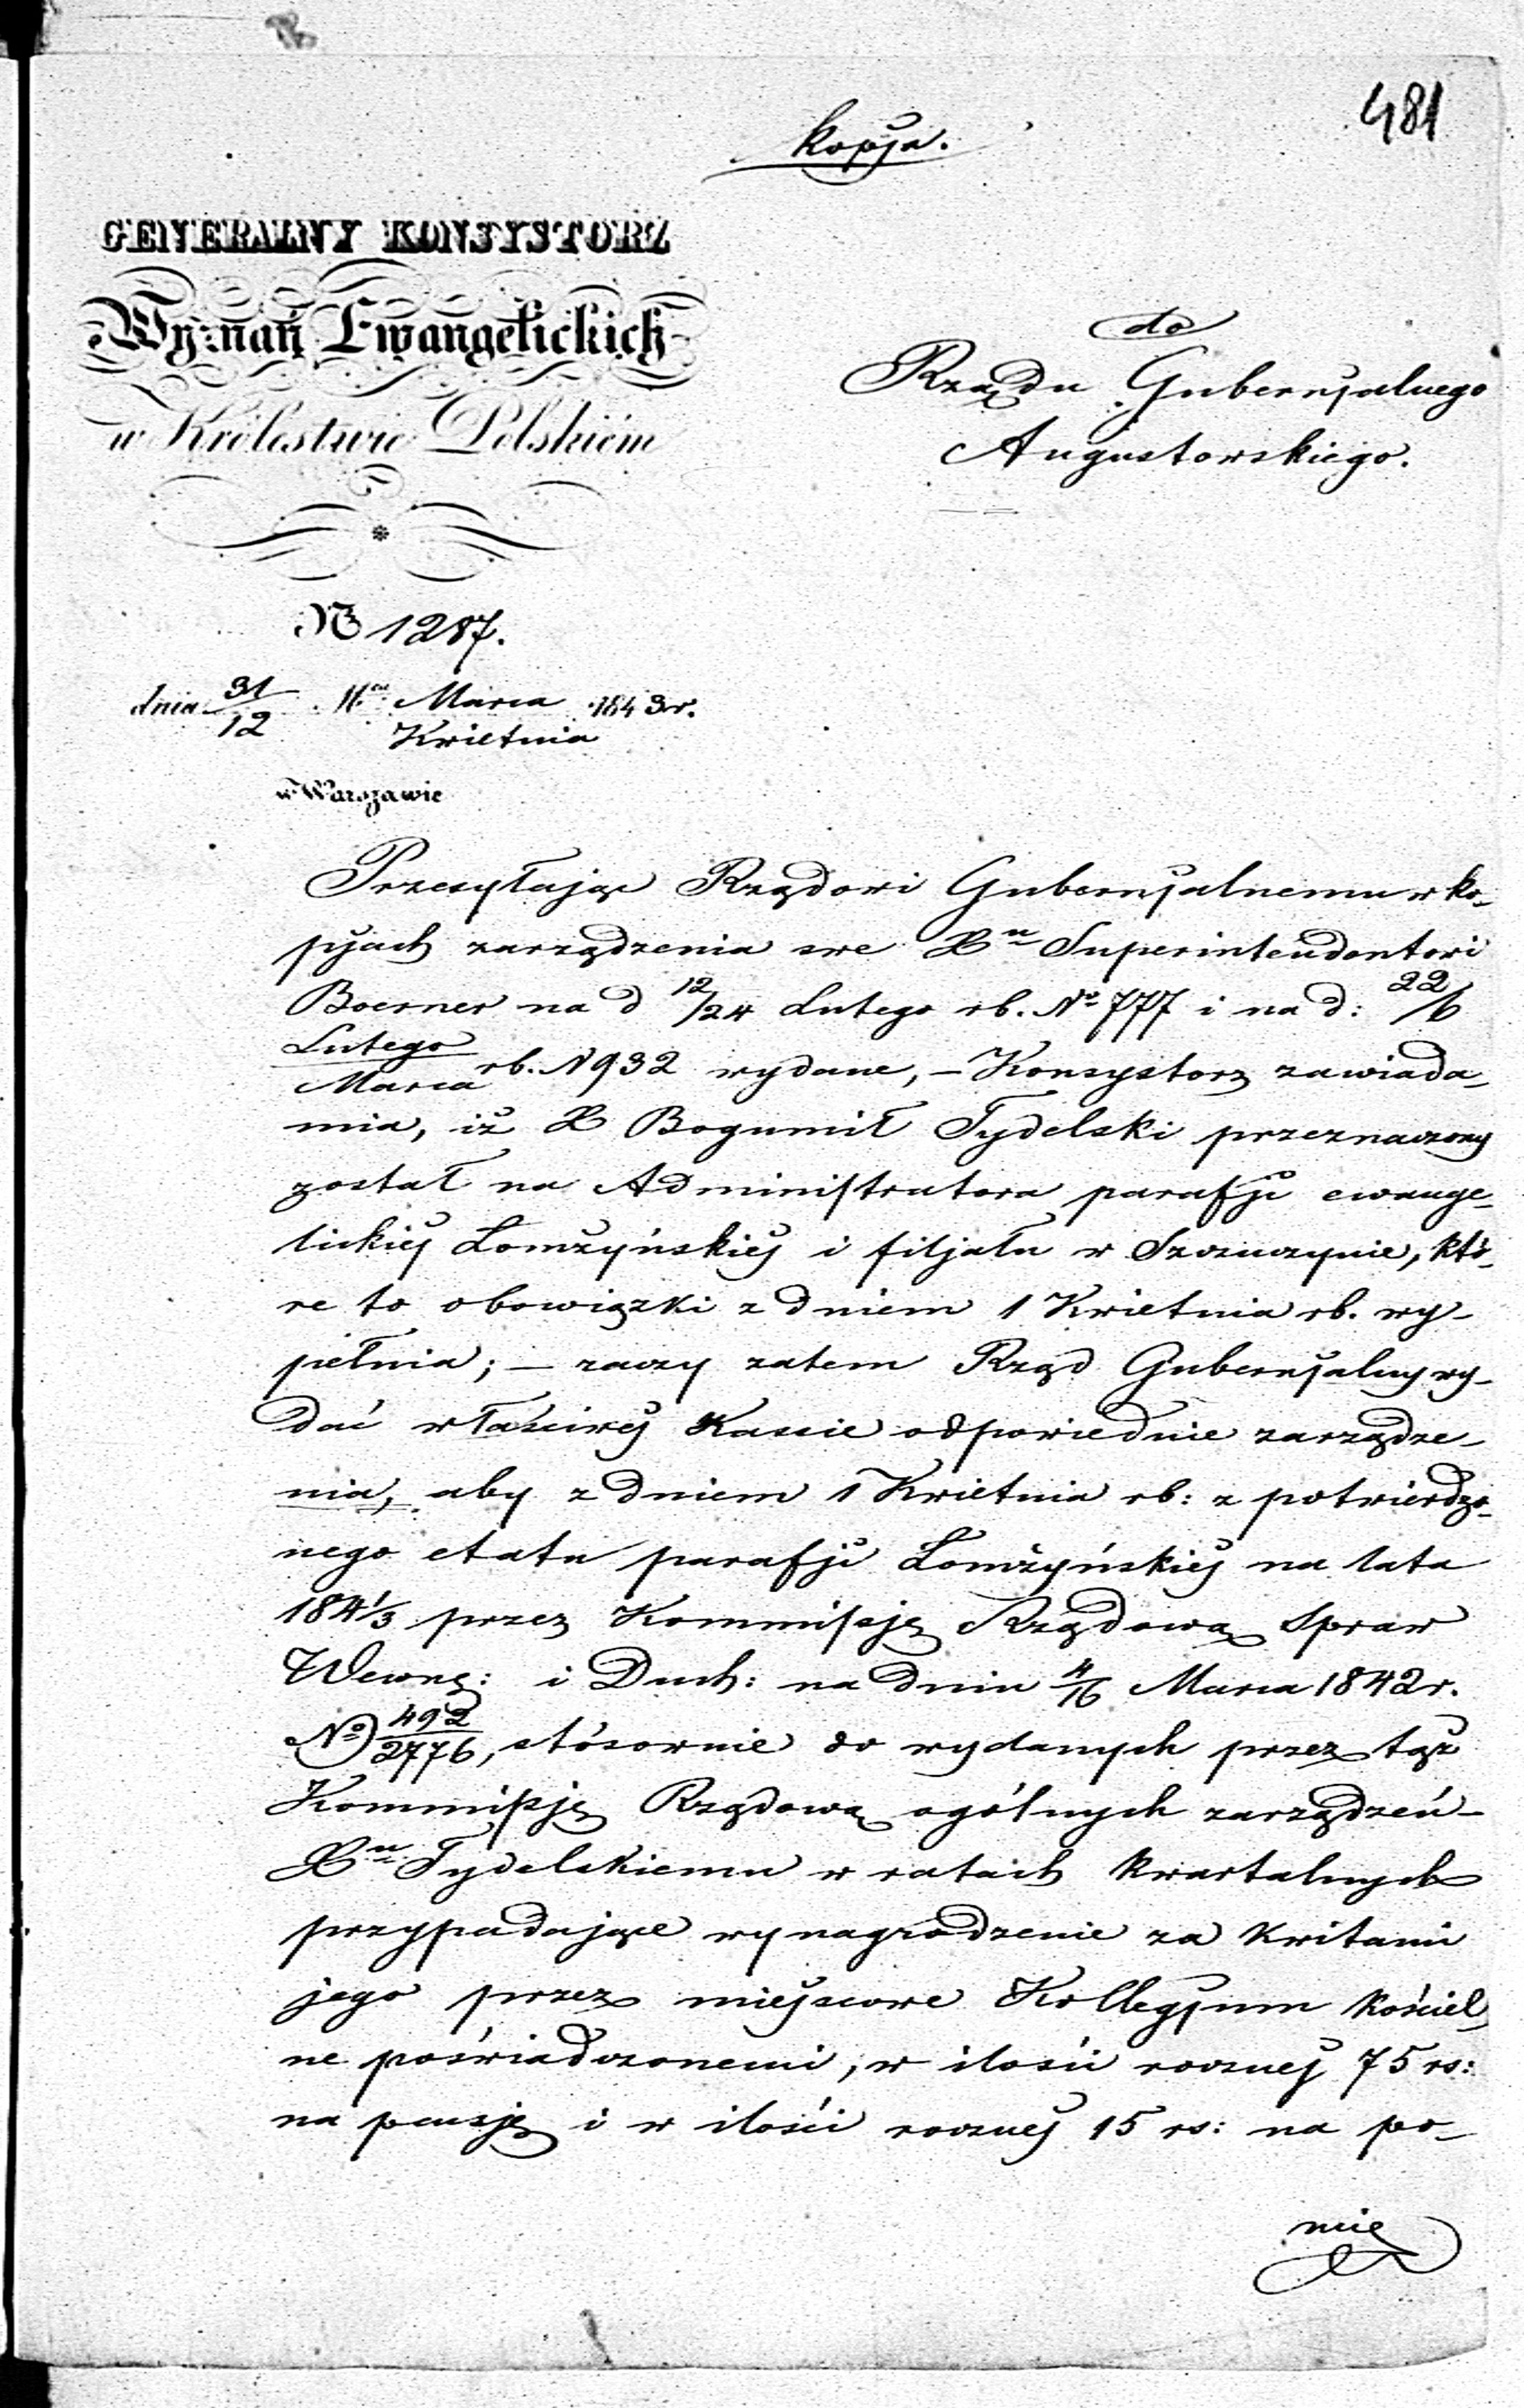 481
kopja.
GENERALNY KONSYSTORZ
Wyznań Ewangelickich
w Królestwie Polskiém
do
Rządu Gubernjalnego
Augustowskiego.
№ 1287.
dnia 31/12 M.ca Marca/Kwietnia 1843 r.
w Warszawie
Przesyłając Rządowi Gubernjalnemu w ko-
pjach zarządzenia swe Xu Superintendentowi
Boerner na d 12/24 Lutego rb. No 777 i na d: 22/6
Lutego/Marca rb. N 932 wydane, – Konsystorz zawiada-
mia, iż X Bogumił Tydelski przeznaczony
został na Administratora parafji ewange-
lickiej Łomżyńskiej i filjału w Szczuczynie, któ-
re to obowiązki z dniem 1 Kwietnia rb. wy-
pełnia; – raczy zatem Rząd Gubernjalny wy-
dać właściwej Kassie odpowiednie zarządze-
nia, aby z dniem 1 Kwietnia rb: z potwierdzo-
nego etatu parafji Łomżyńskiej na lata
1841/3 przez Kommissję Rządową Spraw
Wewnę: i Duch: na dniu 4/16 Marca 1842 r.
No 492/2776, stósownie do wydanych przez tąż
Kommissję Rządową ogólnych zarządzeń –
Xu Tydelskiemu w ratach kwartalnych
przypadające wynagrodzenie za kwitami
jego przez miejscowe Kollegjum kościel-
ne poświadczonemi, w ilości rocznej 75 rs:
na pensję i w ilości rocznej 15 rs: na po-
mie